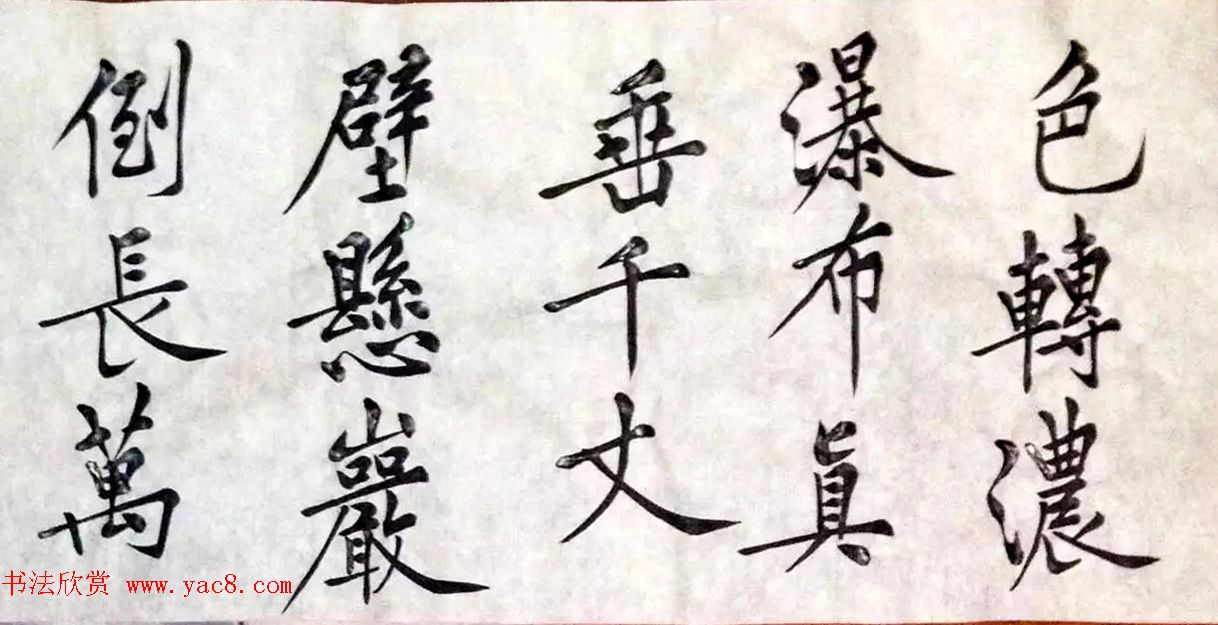 色轉濃
瀑布真
垂千丈
壁懸巖
倒長萬
书法欣赏 www.yac8.com